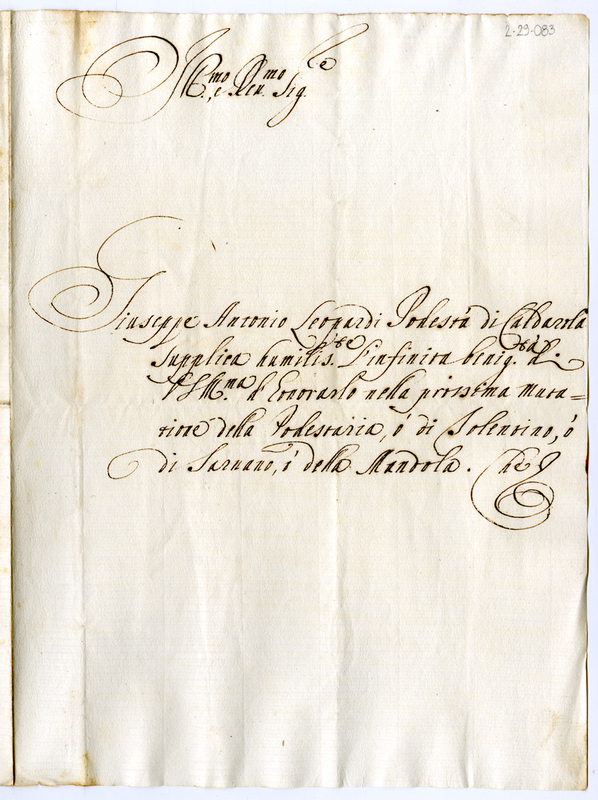 2-29-083
Ill.mo e Rev.mo Sig.re
Giuseppe Antonio Leopardi Podestà di Caldarola
supplica humilis.te l'infinita benig.tà di
V.S. Ill.ma d'honorarlo nella prossima muta=
tione della Podestaria, ó di Tolentino, ó
di Sarnano, ó della Mandola. Che